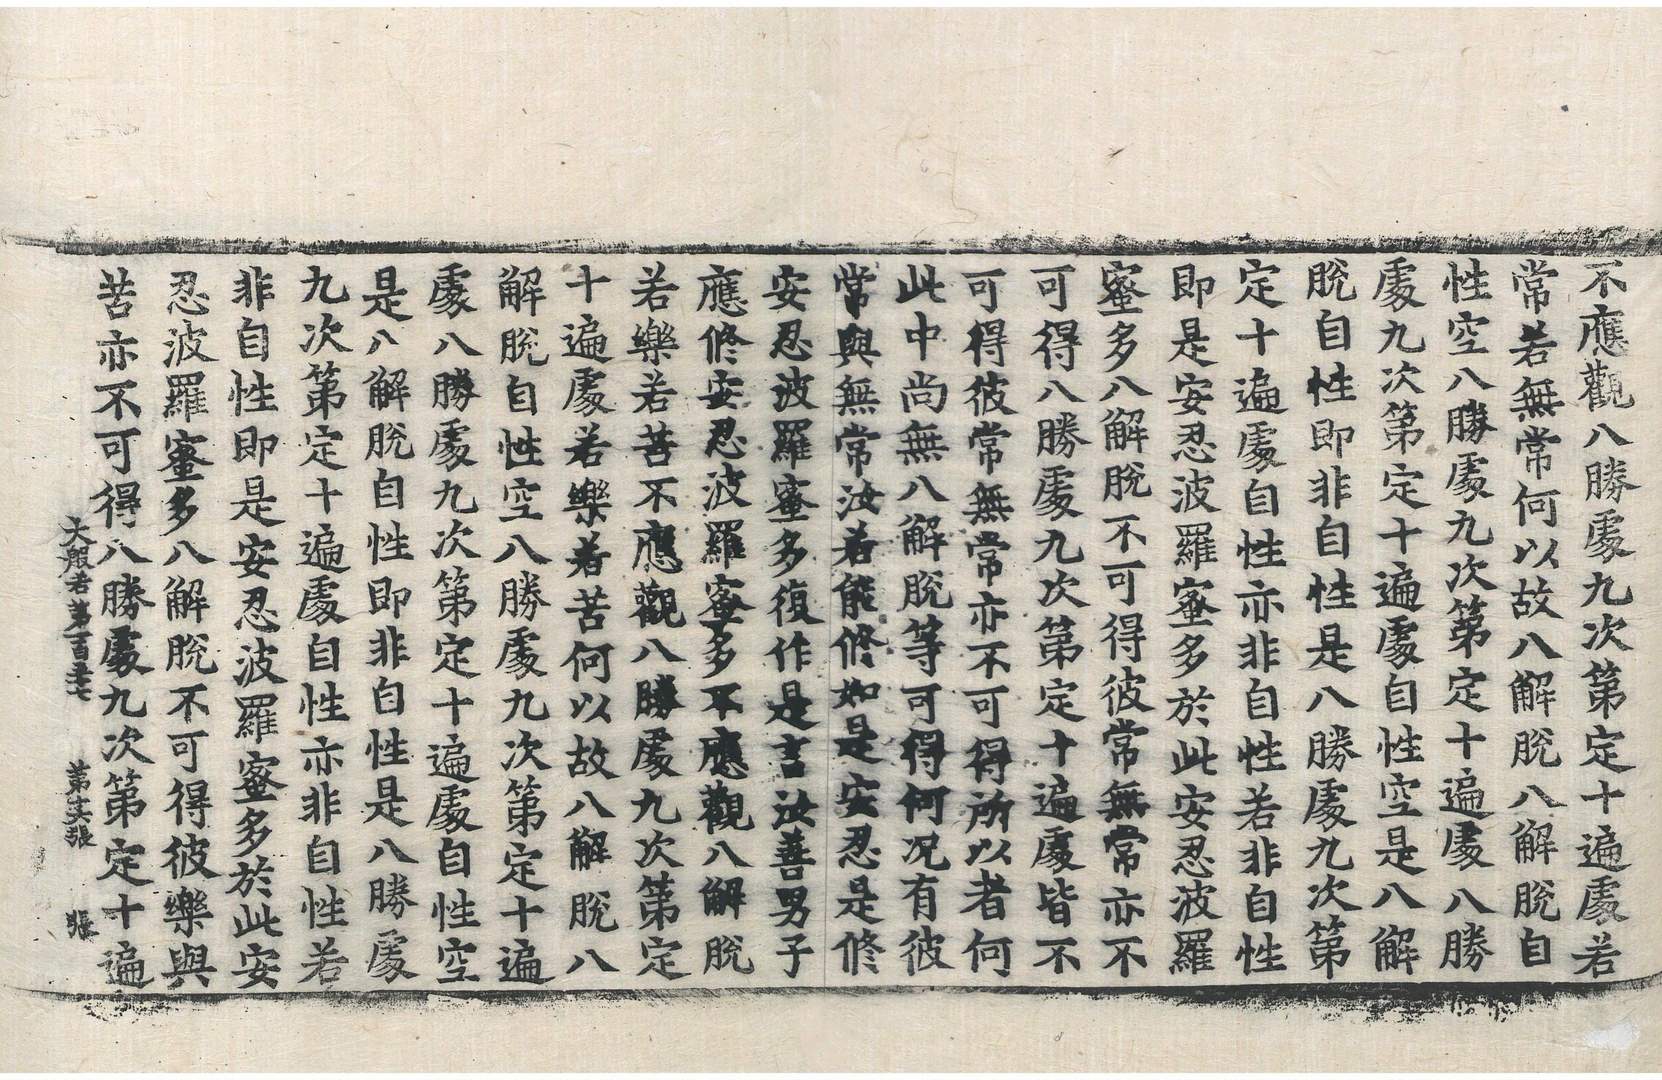 不應觀八勝處九次第定十遍處若
常若無常何以故八解脫八解脫自
性空八勝處九次第定十遍處八勝
處九次第定十遍處自性空是八解
脫自性即非自性是八勝處九次第
定十遍處自性亦非自性若非自性
即是安忍波羅蜜多於此安忍波羅
蜜多八解脫不可得彼常無常亦不
可得八勝處九次第定十遍處皆不
可得彼常無常亦不可得所以者何
此中尚無八解脫等可得何况有彼
常與無常汝若能修如是安忍是修
安忍波羅蜜多復作是言汝善男子
應修安忍波羅蜜多不應觀八解脫
若樂若苦不應觀八勝處九次第定
十遍處若樂若苦何以故八解脫八
解脫自性空八勝處九次第定十遍
處八勝處九次第定十遍處自性空
是八解脫自性即非自性是八勝處
九次第定十遍處自性亦非自性若
非自性即是安忍波羅蜜多於此安
忍波羅蜜多八解脫不可得彼樂與
苦亦不可得八勝處九次第定十遍
大般若第百五十七 第十六張 張